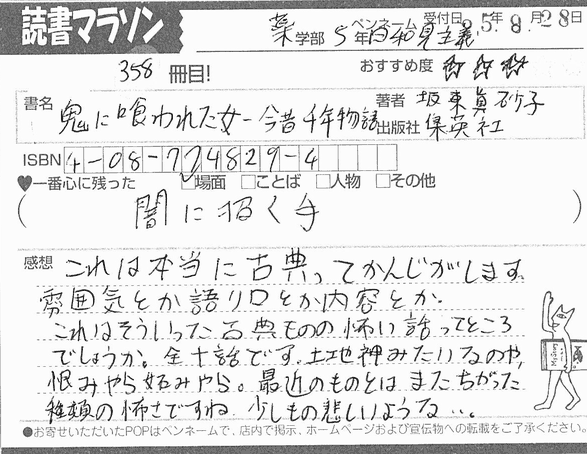 読書マラソン
薬学部 5年 ペンネーム 日和見主義 受付日 25年 8月 28日
358 冊目!
おすすめ度 ☆☆☆
書名 鬼に喰われた女-今昔千年物語
著者 坂東眞砂子
出版社 集英社
ISBN 4-08-774829-4
♥一番心に残った □場面 □ことば □人物 □その他
(闇に招く手)
感想 これは本当に古典ってかんじがします。
雰囲気とか語り口とか内容とか。
これはそういった古典ものの怖い話ってところ
でしょうか。全十話です。土地神みたいなのや、
恨みやら妬みやら。最近のものとはまたちがった
種類の怖さですね。少しもの悲しいような…。
●お寄せいただいたPOPはペンネームで、店内で掲示、ホームページおよび宣伝物への転載をご了承ください。